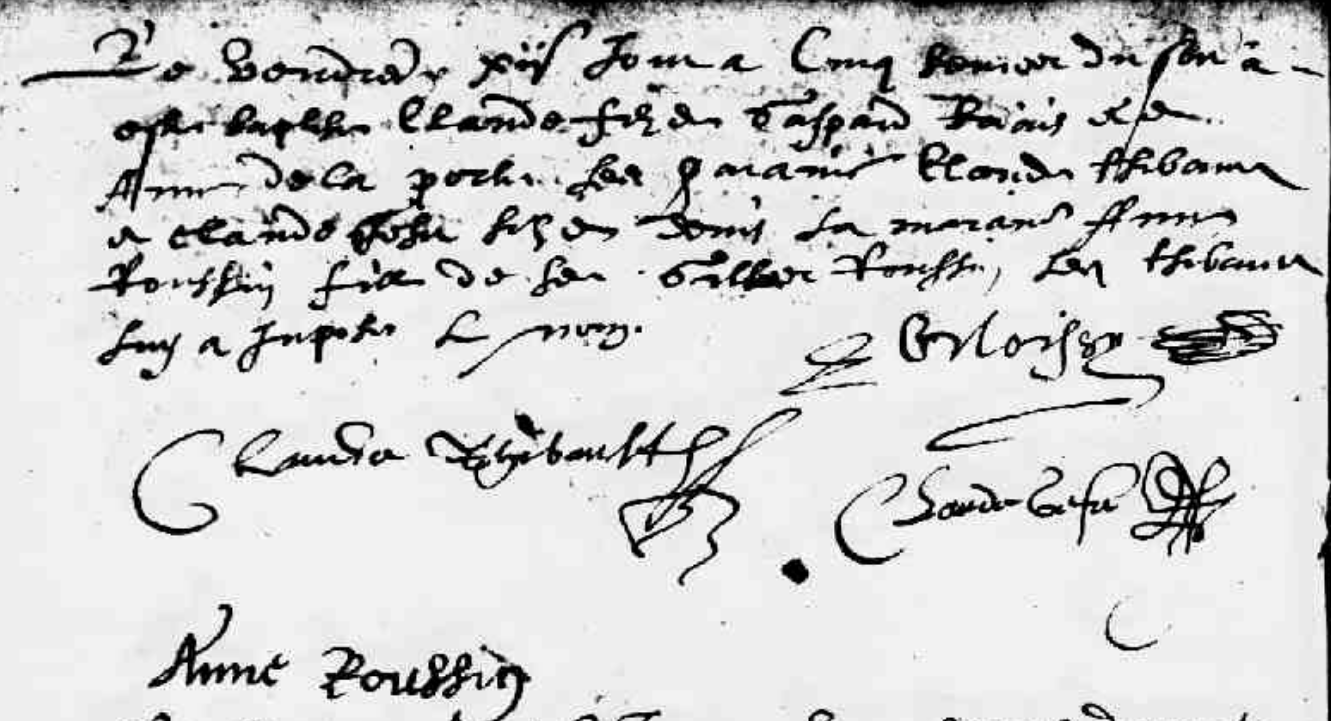 Le vendredy xiij Jour a Cinq heures du soir a
este baptise Claude filz de Gaspard et de
Anne de la porte ses parains Claude thibault
et claude filz de denis La maraine Anne
Roussin fille de feu Gilbert Roussin, Led thibault
luy a Inpose le nom.
Claude Thibault
Claude
Anne Roussin